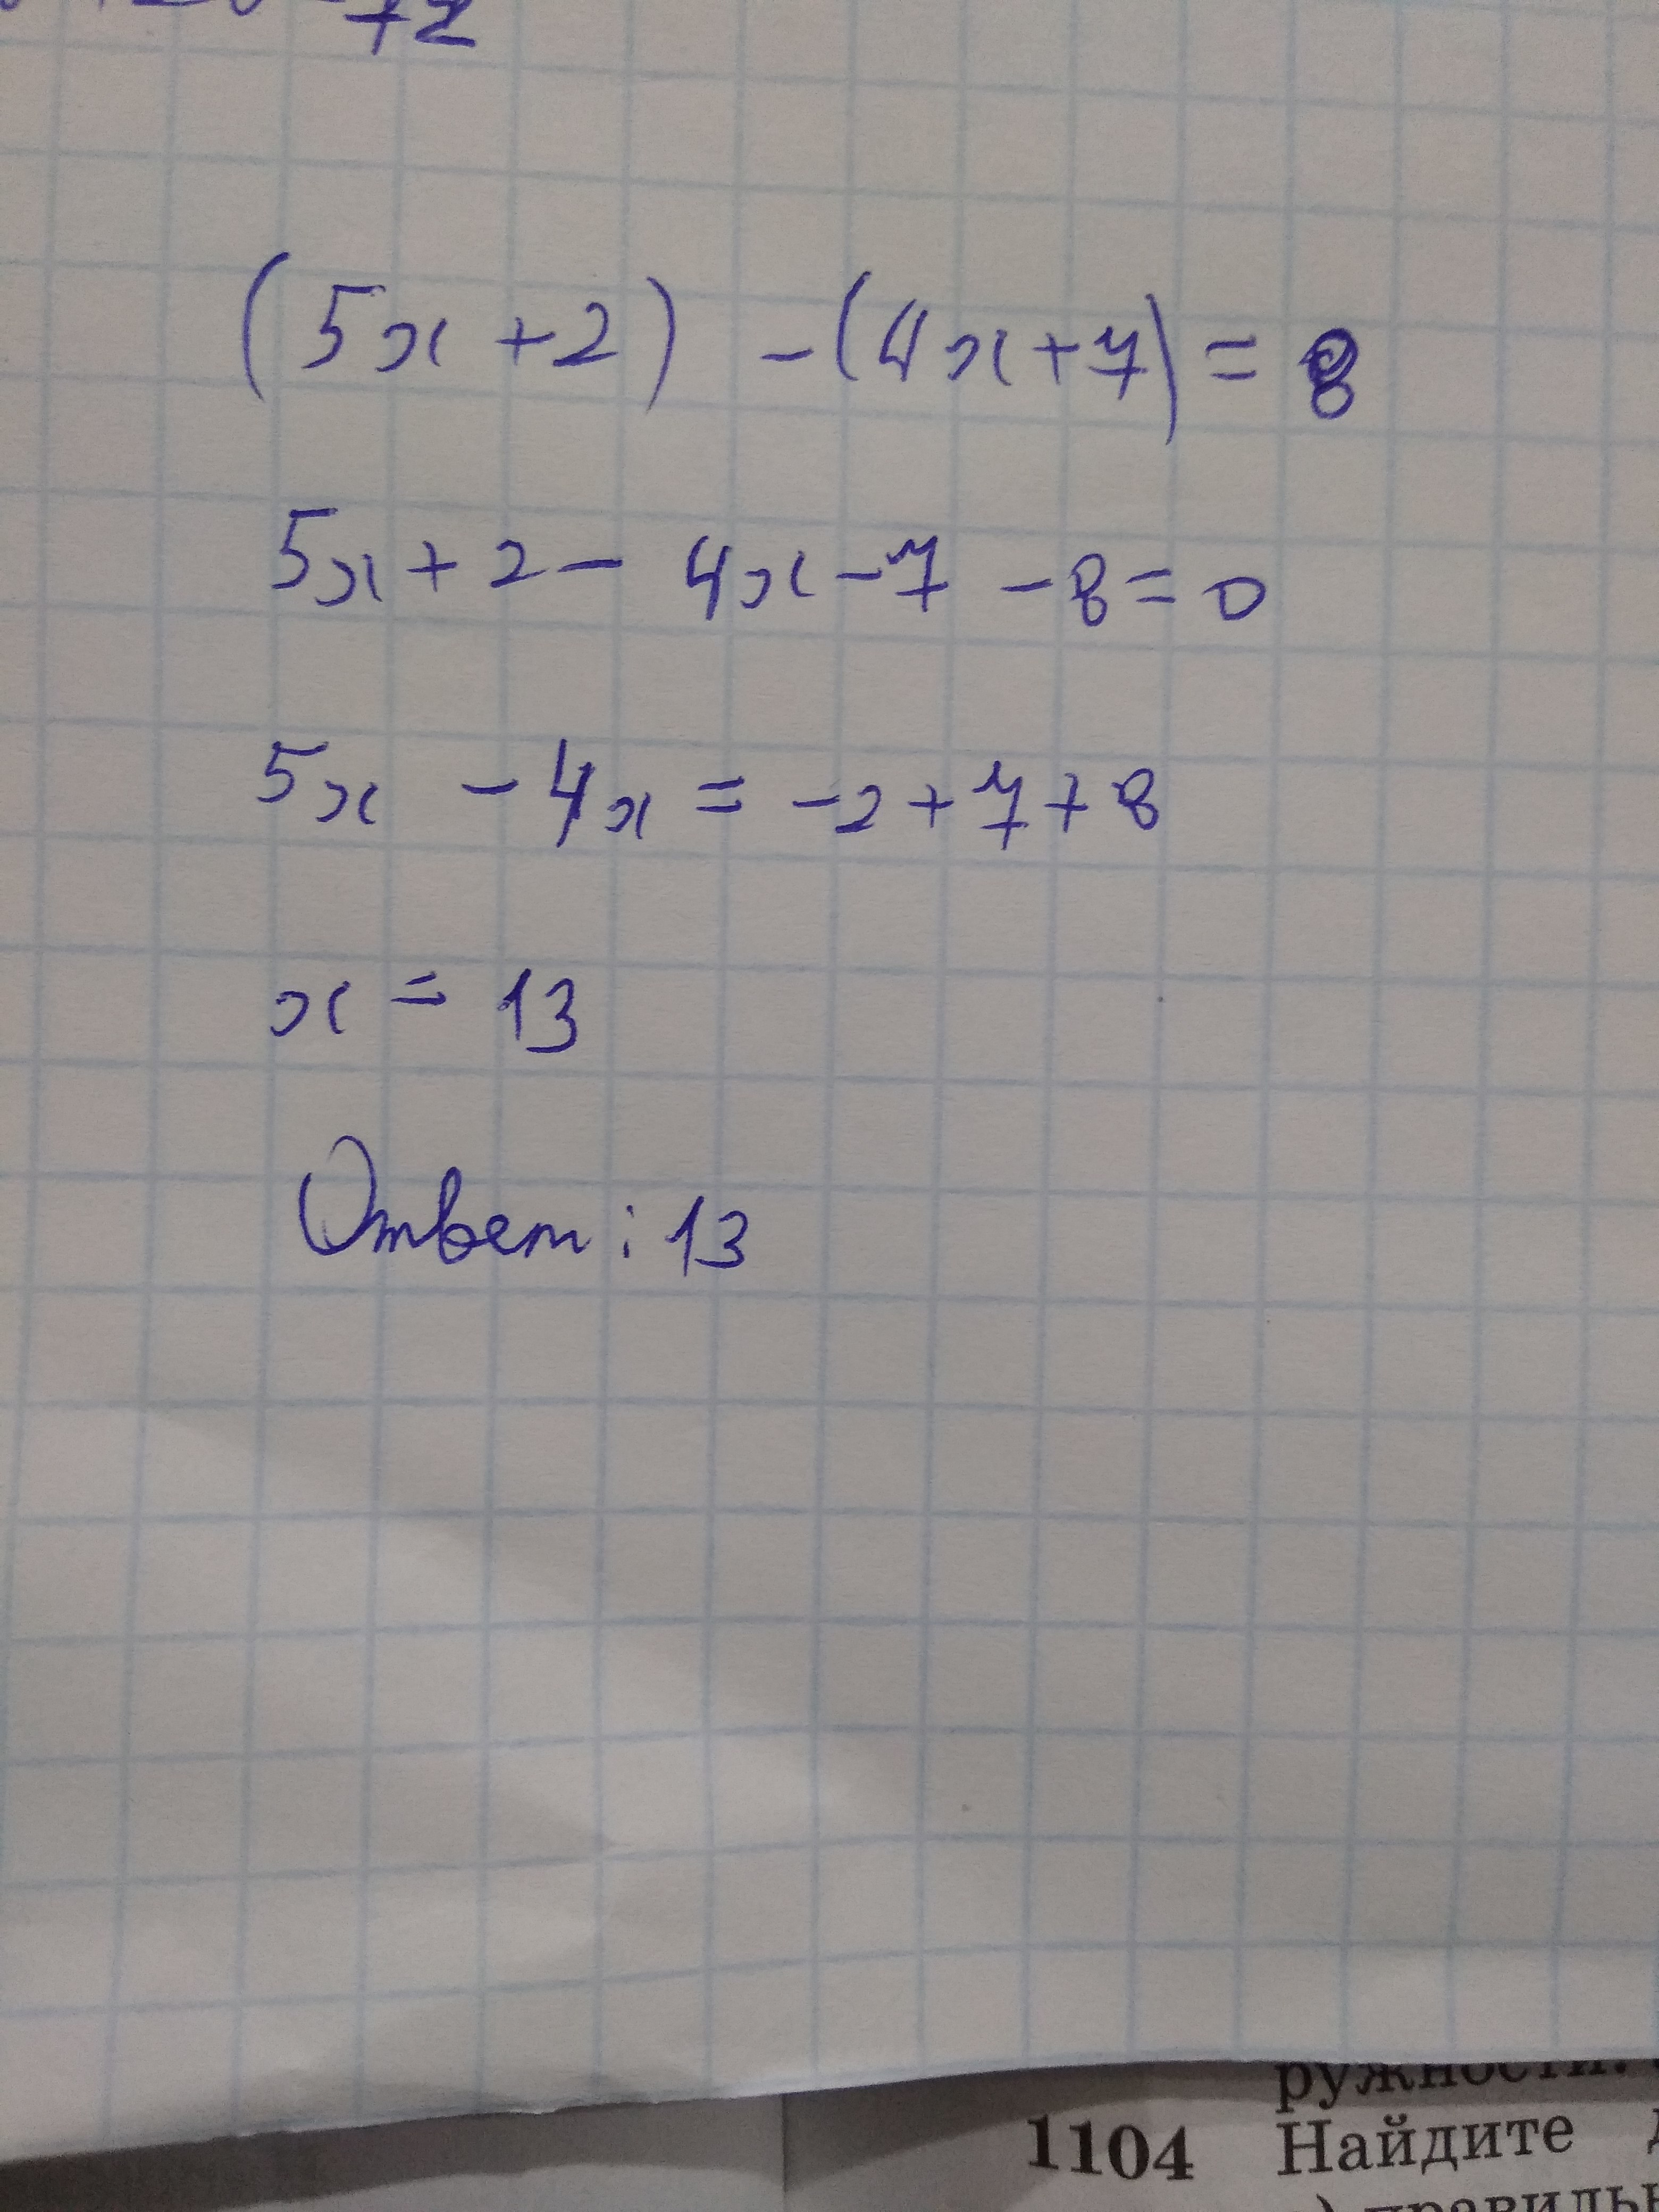 +2
(5x+2) -(4x+7)=8
5x+2-4x-7-8=0
5x-4x=-2+7+8
x=13
Ответ: 13
ружности.
1104 Найдите